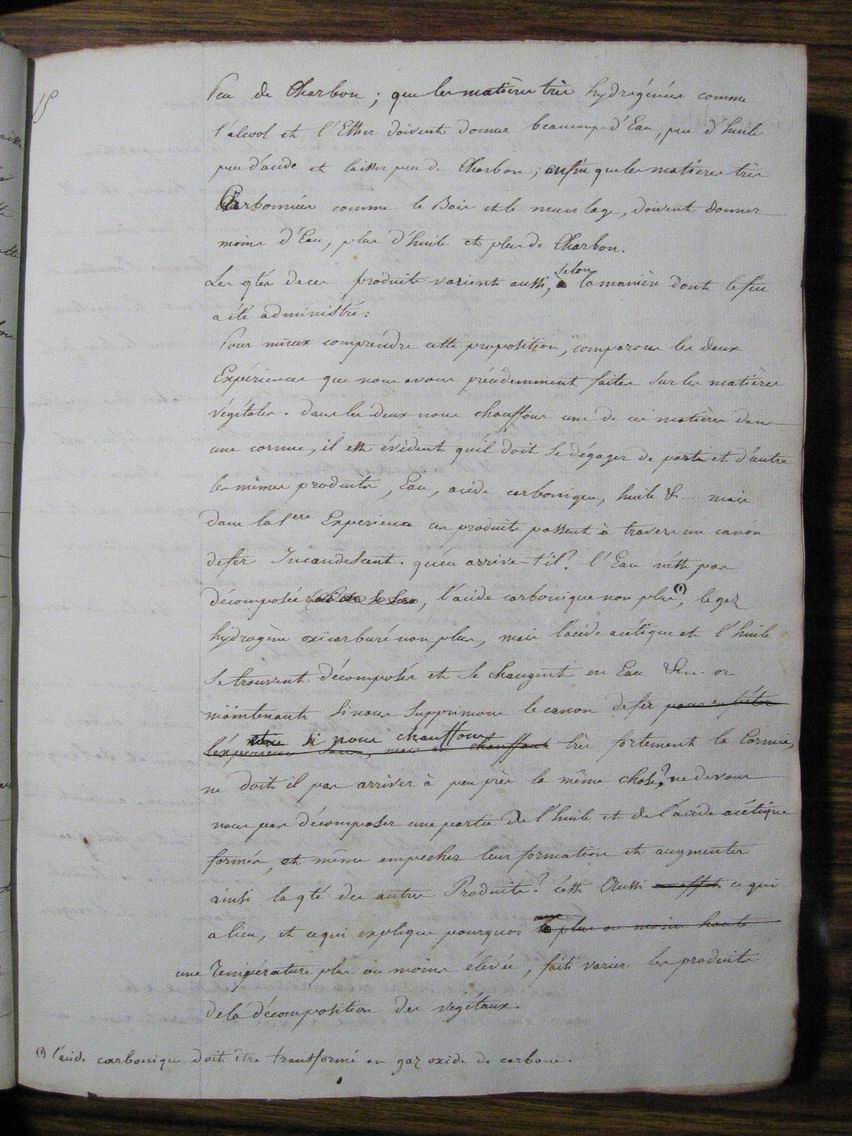 peu de Charbon ; que les matières très hydrogénées comme
l'alcool et l'Ether doivent donner beaucoup d'Eau, peu d'huile
peu d'acide et laisser peu de Charbon ; enfin que les matières très
Carbonnées comme le Bois et le mucilage, doivent donner
moins d'Eau, plus d'huile et plus de Charbon.
Les qtés de ces produits varient aussi, selon la manière dont le feu
a été administré :
Pour mieux comprendre cette proposition, comparons les deux
Expériences que nous avons précédemment faites sur les matières
végétales. dans les deux nous chauffons une de ces matières dans
une cornue, il est évident qu'il doit se dégager de part et d'autre
les mêmes produits, Eau, acide carbonique, huile &... mais
dans la 1ere Expérience ces produits passent à travers un canon
de fer Incandescent. qu'en arrive-t'il ? l'Eau n'est pas
décomposée, l'acide carbonique non plus (1), le gaz
hydrogène oxicarburé non plus, mais l'acide acétique et l'huile
se trouvent décomposés et se changent en Eau &... or
maintenant si nous supprimons le canon de fer
si nous chauffons
très fortement la Cornue,
ne doit il pas arriver à peu près la même chose ? ne devons
nous pas décomposer une partie de l'huile et de l'acide acétique
formés, et même empecher leur formation et augmenter
ainsi la qté des autres Produits ? c'est Aussi ce qui
a lieu, et ce qui explique pourquoi
une Température plus ou moins élevée, fait varier les produits
de la décomposition des végétaux.
(1) l'acide carbonique doit être transformé en gaz oxide de carbone.
18